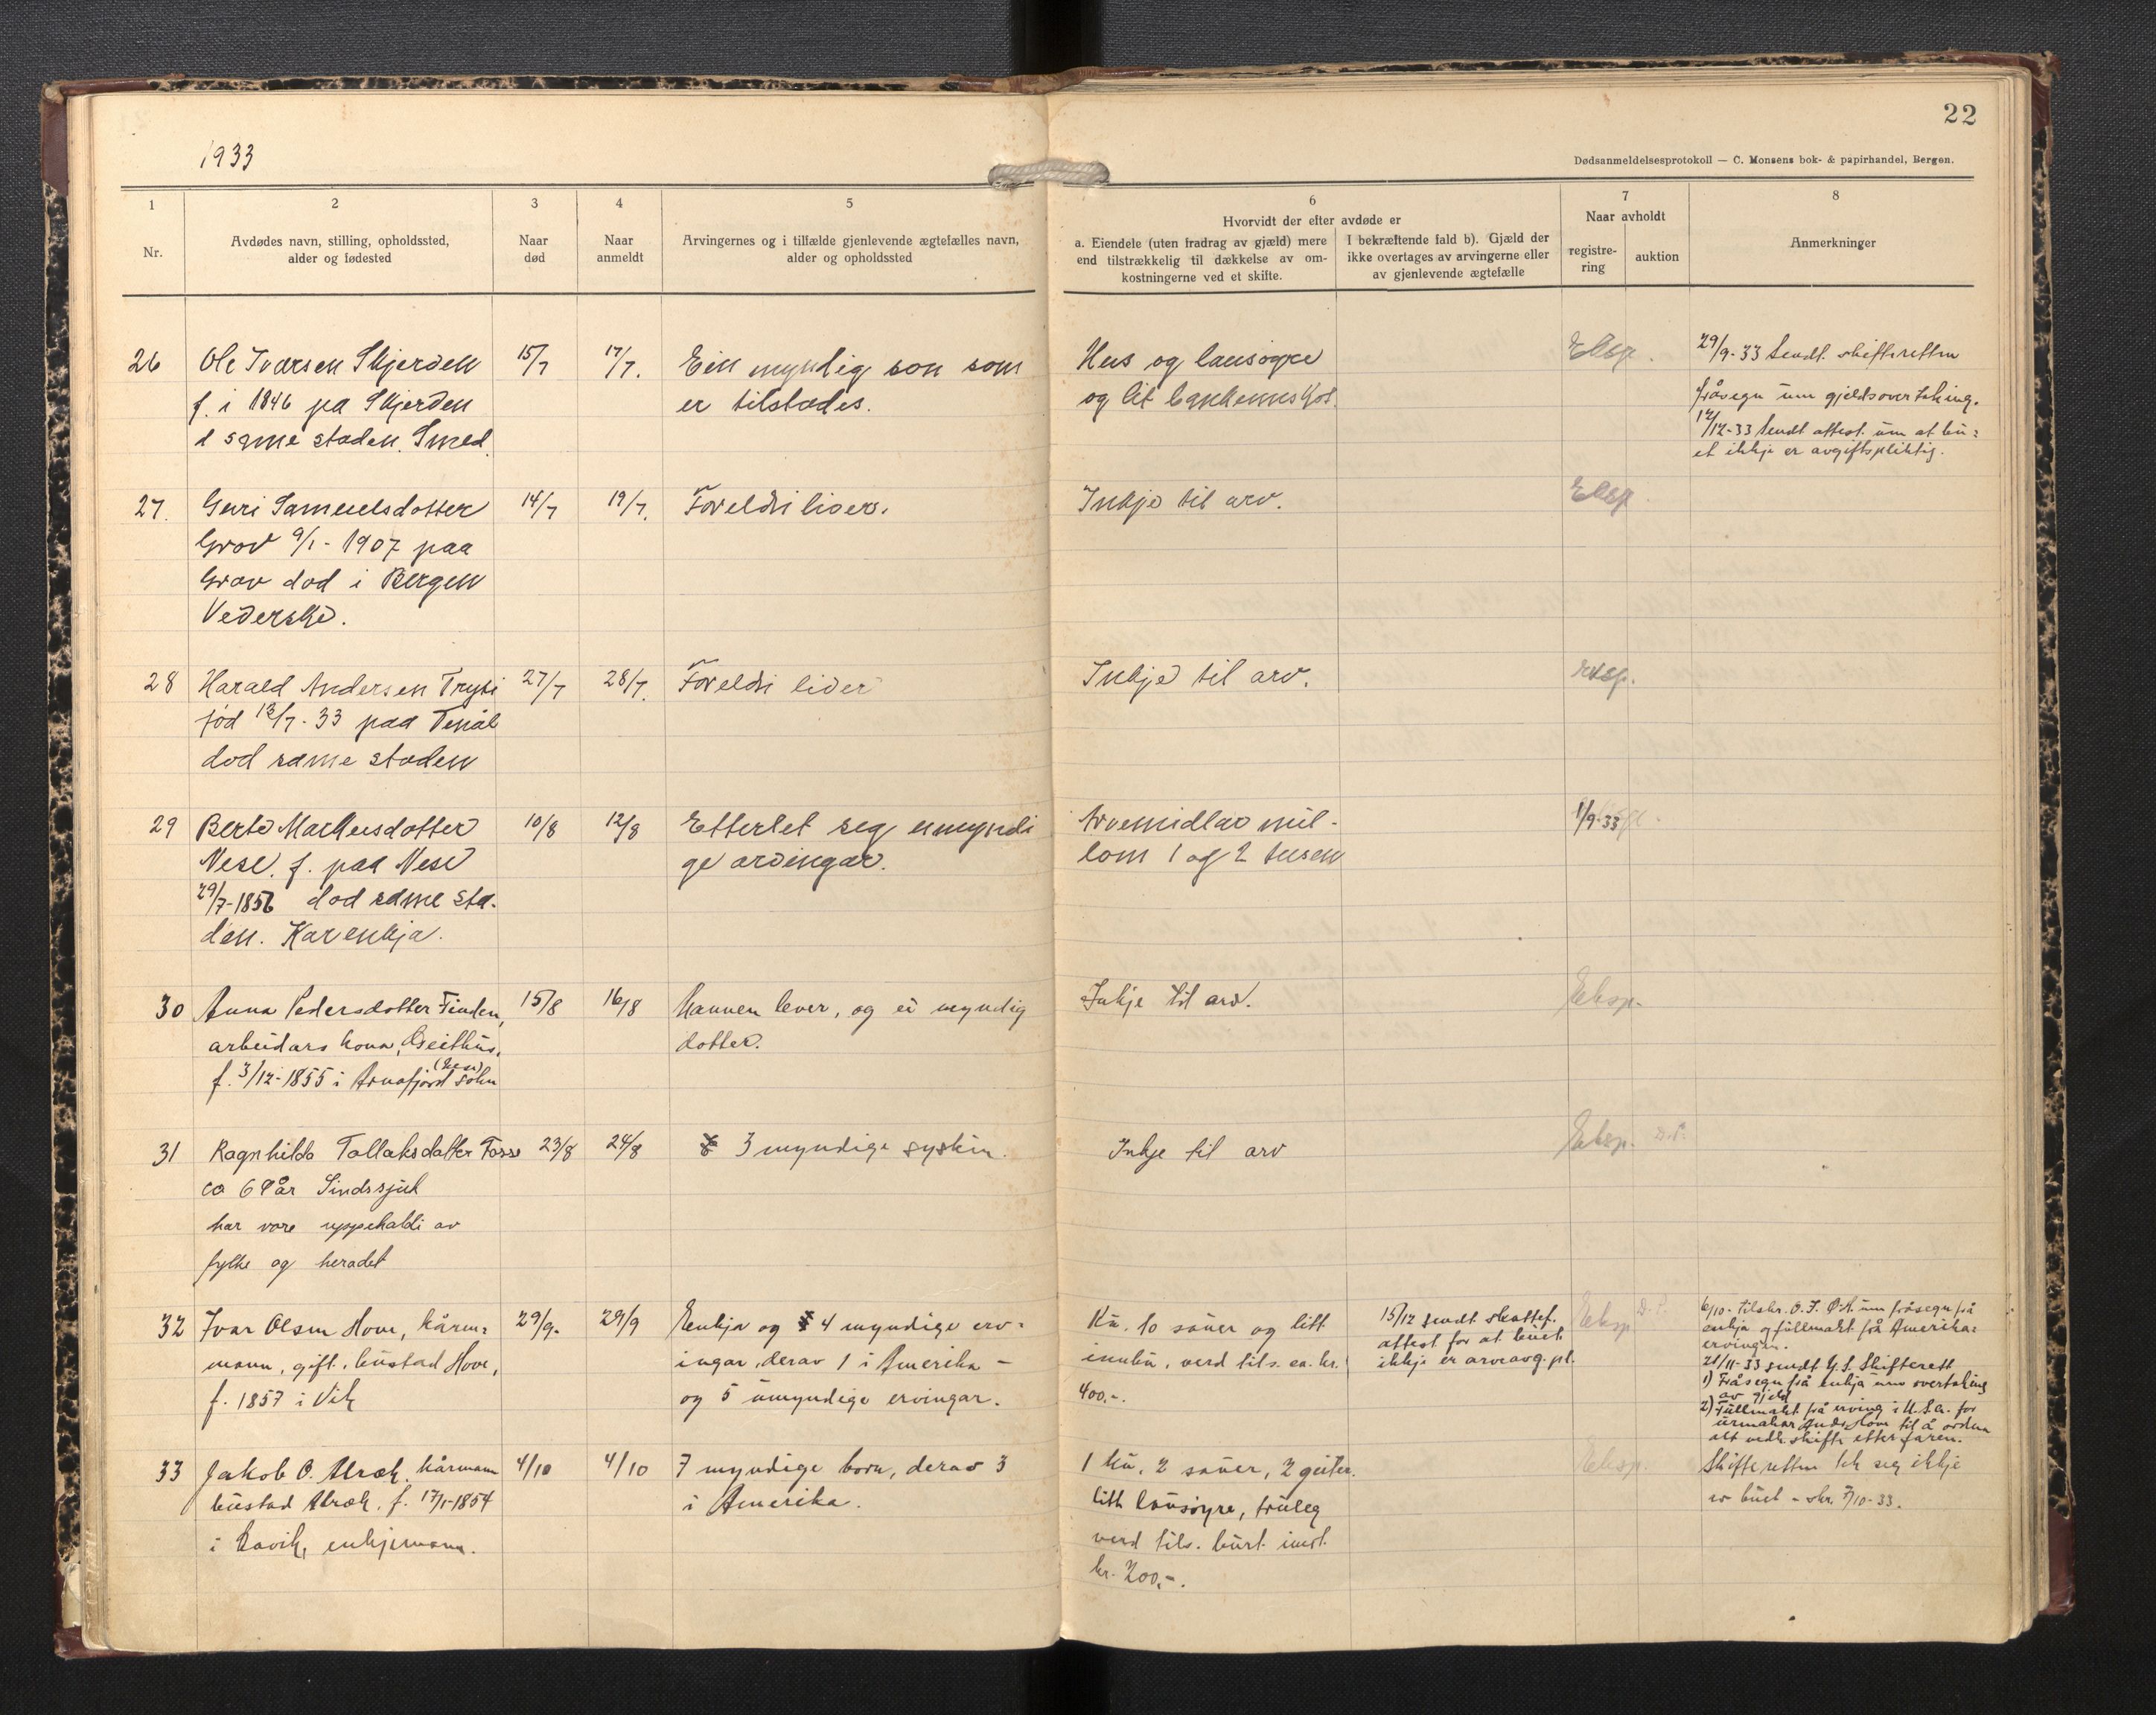 1933
22
Dødsanmeldelsesprotokoll — C. Monsens bok- & papirhandel, Bergen.
1
2
3
4
5
6
7
8
Nr.
Avdødes navn, stilling, opholdssted,
alder og fødested
Naar
død
Naar
anmeldt
Arvingernes og i tilfælde gjenlevende ægtefælles navn,
alder og opholdssted
Hvorvidt der efter avdøde er
a. Eiendele (uten fradrag av gjæld) mere
end tilstrækkelig til dækkelse av om-
kostningerne ved et skifte.
I bekræftende fald b). Gjæld der
ikke overtages av arvingerne eller
av gjenlevende ægtefælle
Naar avholdt
registre-
ring
auktion
Anmerkninger
26
Ole Ivarsen Skjerden
f. i 1846 pa Skjerden
d same staden. Smed.
15/7
17/7.
Ein myndig son som
er tilstades.
Hus og lausøgre
og lit
Eksp.
29/9-33 Sendt skifteretten
fråsegn um gjeldsovertaking.
12/12-33 Sendt attest um at bu=
et ikkje er avgiftspliktig.
27.
Guri Samuelsdotter
Grov 9/1-1907 paa
Grov dod i Bergen
14/7
19/7.
Foreldri liver.
Inkje til arv.
Eksp
28
Harald Andersen Tryti
fød 13/7-33 paa
dod same staden
27/7
28/7.
Foreldri liver
Inkje til arv.
Eksp.
29
Berte Markusdotter
Nese. f. paa Nese
29/7-1856 dod same sta-
den. Kårenkja.
10/8
12/8
Etterlet seg umyndi
ge arvingar.
Arvemidlar mil-
lom 1 og 2 tusen
1/9-33
30
Anna Pedersdotter Finden,
arbeidars kona,
f. 3/12-1855 i Arnafjord sokn
15/8
16/8
Mannen lever, og ei myndig
dotter.
Inkje til arv.
Eksp.
31
Ragnhilda Tollaksdatter Fosse
ca 69 år Sindssjuk
har vore uppehaldi av
fylke og heradet
23/8
24/8
3 myndige syskin.
Inkje til arv
Eksp. D.P.
32
Ivar Olsen Hove, kårm=
mann, gift, bustad Hove,
f. 1857 i Vik
29/9.
29/9
Enkja og 4 myndige erv=
ingar, derav 1 i Amerika -
og 5 umyndige ervingar.
Ku. 10 sauer og litt
innbu, verd tils. ca. kr.
400,-.
15/12 sendt skattef.
attest for at buet
ikkje er arveavg.pl.
Eksp. D.P.
6/10- tilskr. O. J. um fråsegn frå
enkja og fullmakt frå Amerika=
ervingen.
21/11-33 sendt Y. S. Skifterett
1) Fråsegn frå enkja um overtaking
av gjeld
2) Fullmakt frå erving i U.S.A. for
urmakar Hove til å ordna
alt vedk. skifte etter faren.
33
Jakob O. kårmann
bustad f. 17/1-1854
i Lavik, enkjemann.
4/10
4/10
7 myndige born, derav 3
i Amerika.
1 ku, 2 sauer, 2 geiter.
litt lausøyre, truleg
verd tils. burt imot
kr. 200,-.
Eksp.
Skifteretten tek seg ikkje
av buet - skr. 7/10-33.